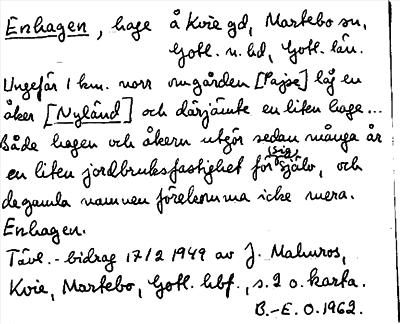 Enhagen, hage å Kvie gd, Martebo sn,
Gotl. n. hd, Gotl. län.
Ungefär 1 km. norr om gården [Pajse] låg en
åker [Nyländ] och därjämte en liten hage...
Både hagen och åkern utgör sedan många år
en liten jordbruksfastighet för (sig) själv, och
de gamla namnen förekomma icke mera.
Enhagen.
Tävl.-bidrag 17/2 1949 av J. Malmros,
Kvie, Martebo, Gotl. hbf., s. 2 o. karta.
B.-E. O. 1962.